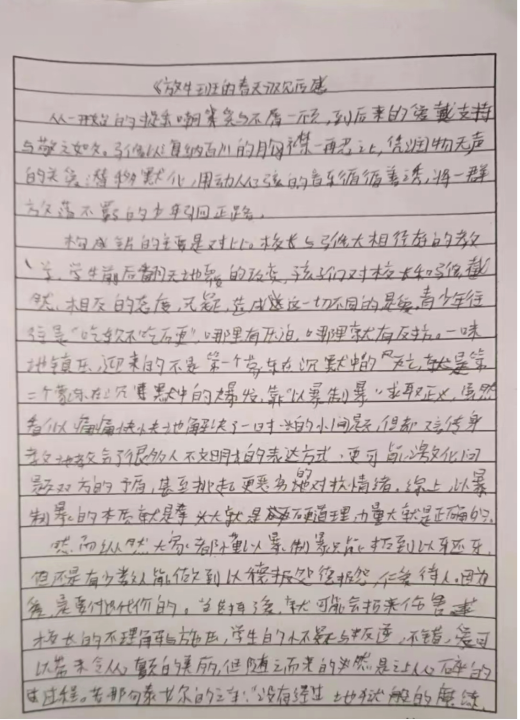 《放牛班的春天》观后感
从一开始的捉弄嘲笑与不屑一顾,到后来的爱戴支持
与敬之如父。马修以海纳百川的胸襟一再忍让,凭润物无声
的关爱潜移默化,用动人心弦的音乐循循善诱,将一群
放荡不羁的少年引回正路。
构成的主要是对比。校长与马修大相径庭的教
学,学生前后翻天地覆的改变,孩子们对校长和马修截
然相反的态度,无疑,造成这一切不同的是爱,青少年往
往是“吃软不吃硬”,哪里有压迫,哪里就有反抗。一味
地镇压,迎来的不是第一个带车在沉默中的死亡,就是第
二个在沉默中的爆发,靠“以暴制暴”求取正义,虽然
看似痛痛快快地解决了一时的小问题,但却言传身
教地教会了很多人不文明的表达方式,更可能激化问
题双方的矛盾,甚至挑起更恶劣的对抗情绪。综上,以暴
制暴的本质就是拳头大就是硬道理,力量大就是正确的。
然而纵然大家都懂以暴制暴只能招到以牙还牙,
但还是有少数人能做到以德报怨,仁爱待人。因为
爱,是要付出代价的。当先持爱,就可能会招来伤害
校长的不理解与施压,学生的不疑与叛逆,不错,爱可
以带来令人颤的美丽,但随之而来的必然是让人心碎的
过程。若那句泰戈尔的文字:“没有经过地狱般的磨练